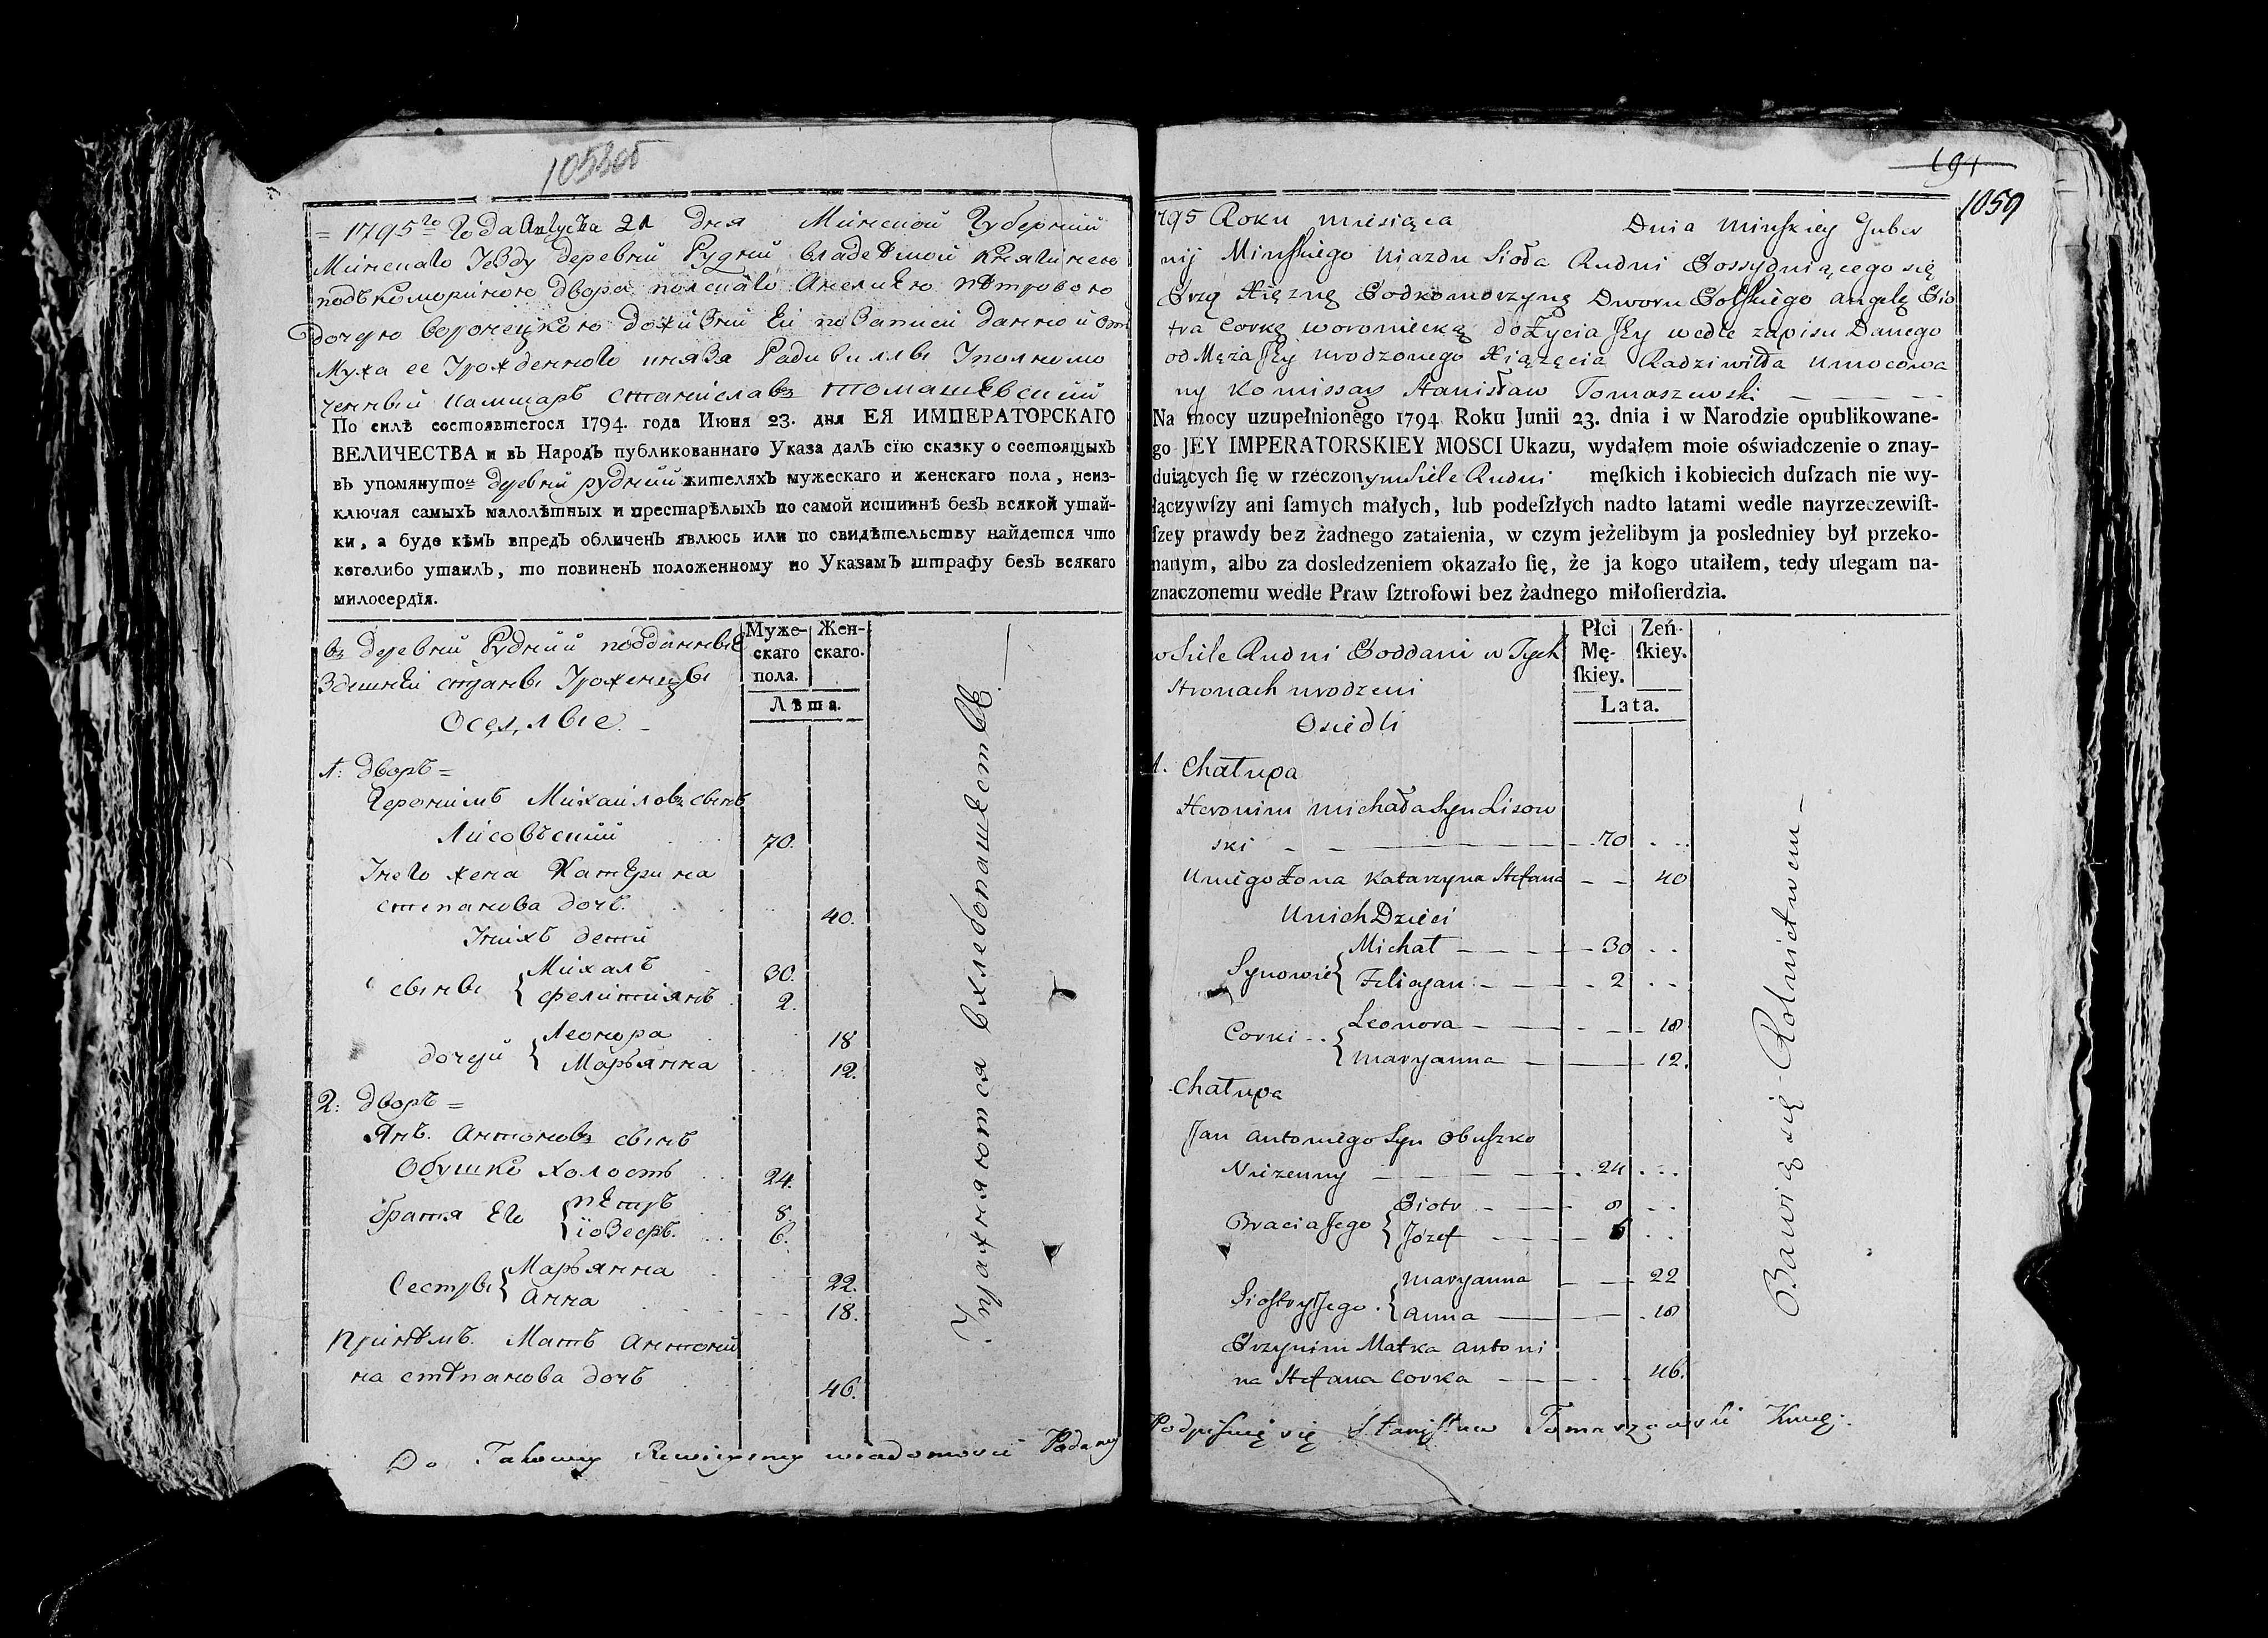 1058об
= 1795го Года Августа 21 дня Минской Губернии
Минскаго Уезду деревни Рудни владемой Княгинею
подъкоморинею двора полскаго Анелиею Петровою
дочерю Воронецкою дожизни Ей по записи данной от
Мужа ее Урожденного князя Радивиллы Уполномо
ченный камисаръ Станиславъ Томашевский
По силѣ состоявшегося 1794. года Июня 23. дня ЕЯ ИМПЕРАТОРСКАГО
ВЕЛИЧЕСТВА и въ Народѣ публикованнаго Указа далъ сїю сказку о состоящыхъ
въ упомянутой деревни рудний жителяхъ мужескаго и женскаго пола, неиз-
ключая самыхъ малолѣтныхъ и престарѣлыхъ по самой истиннѣ безъ всякой утай-
ки, а буде кѣмъ впредъ обличенъ явлюсь или по свидѣтельству найдется что
коголибо утаилъ, то повиненъ положенному по Указамъ штрафу безъ всякаго
милосердїя.
въ деревни Рудний подданные
Здешней страны Уроженцы
Оселые
Муже-
скаго
пола.
Жен-
скаго.
Лѣта.
1: дворъ =
Героним Михайловъ сынъ
Лисовъский 70.
Унего жена Катерина
степанова дочь. 40.
Унихъ дети
сыны { Михалъ 30.
Фелитиянъ 2.
дочери { Леонора 18
Марьянна 12.
2: дворъ =
Янъ. Антоновъ сынъ
Обушко холостъ 24.
братья Его { Петръ 8.
їозефъ. 6.
Сестры { Марьянна 22.
Анна 18.
Принемъ. Мать Антони
на степанова дочь 46.
Упражняются в хлебопашестве
Do Takowey Rewizyiney wiadomosci Podaney
191
1059
1795 Roku miesiąca Dnia Minskiey Guber
nij Minskiego Uiazdu Sioła Rudni Possyduiącego się
Przą Xięznę Podkomorzynę Dworu Polskiego Angelę Pio
tra Corkę Woroniecką do Zycia Jey wedle zapisu Danego
od Męża Jey urodzonego Xiązęcia Radziwiłła Umocowa
ny Komissarz Stanisław Tomaszewski
Na mocy uzupełnionego 1794 Roku Junii 23. dnia i w Narodzie opublikowane-
go JEY IMPERATORSKIEY MOSCI Ukazu, wydałem moie oświadczenie o znay-
duiących ſię w rzeczonym Siele Rudni męſkich i kobiecich duſzach nie wy-
łączywſzy ani ſamych małych, lub podeſzłych nadto latami wedle nayrzeczewiſt-
ſzey prawdy bez żadnego zataienia, w czym jeżelibym ja posledniey był przeko-
nanym, albo za dosledzeniem okazało ſię, że ja kogo utaiłem, tedy ulegam na-
znaczonemu wedle Praw ſztrofowi bez żadnego miłoſierdzia.
w Siele Rudni Poddani w Tych
Stronach urodzeni
Osiedli
Płci
Mę-
ſkiey.
Zeń-
ſkiey.
Lata.
1. Chałupa
Heronim Michała Syn Lisow
ski 70
U niego Żona Katarzyna Stefana 40
U nich Dzieci
Synowie { Michał 30
Felicyan 2
Corki { Leonora 18
Maryanna 12.
Chałupa
Jan Antoniego Syn Obuszko
Nieżenny 24
Bracia Jego { Piotr 8
Józef 6
Siostry Jego { Maryanna 22
Anna 18
Przynim Matka Antoni
na Stefana Corka 46.
Bawią się Rolnictwem
Podpisuię się Stanisław Tomaszewski Kmsż: